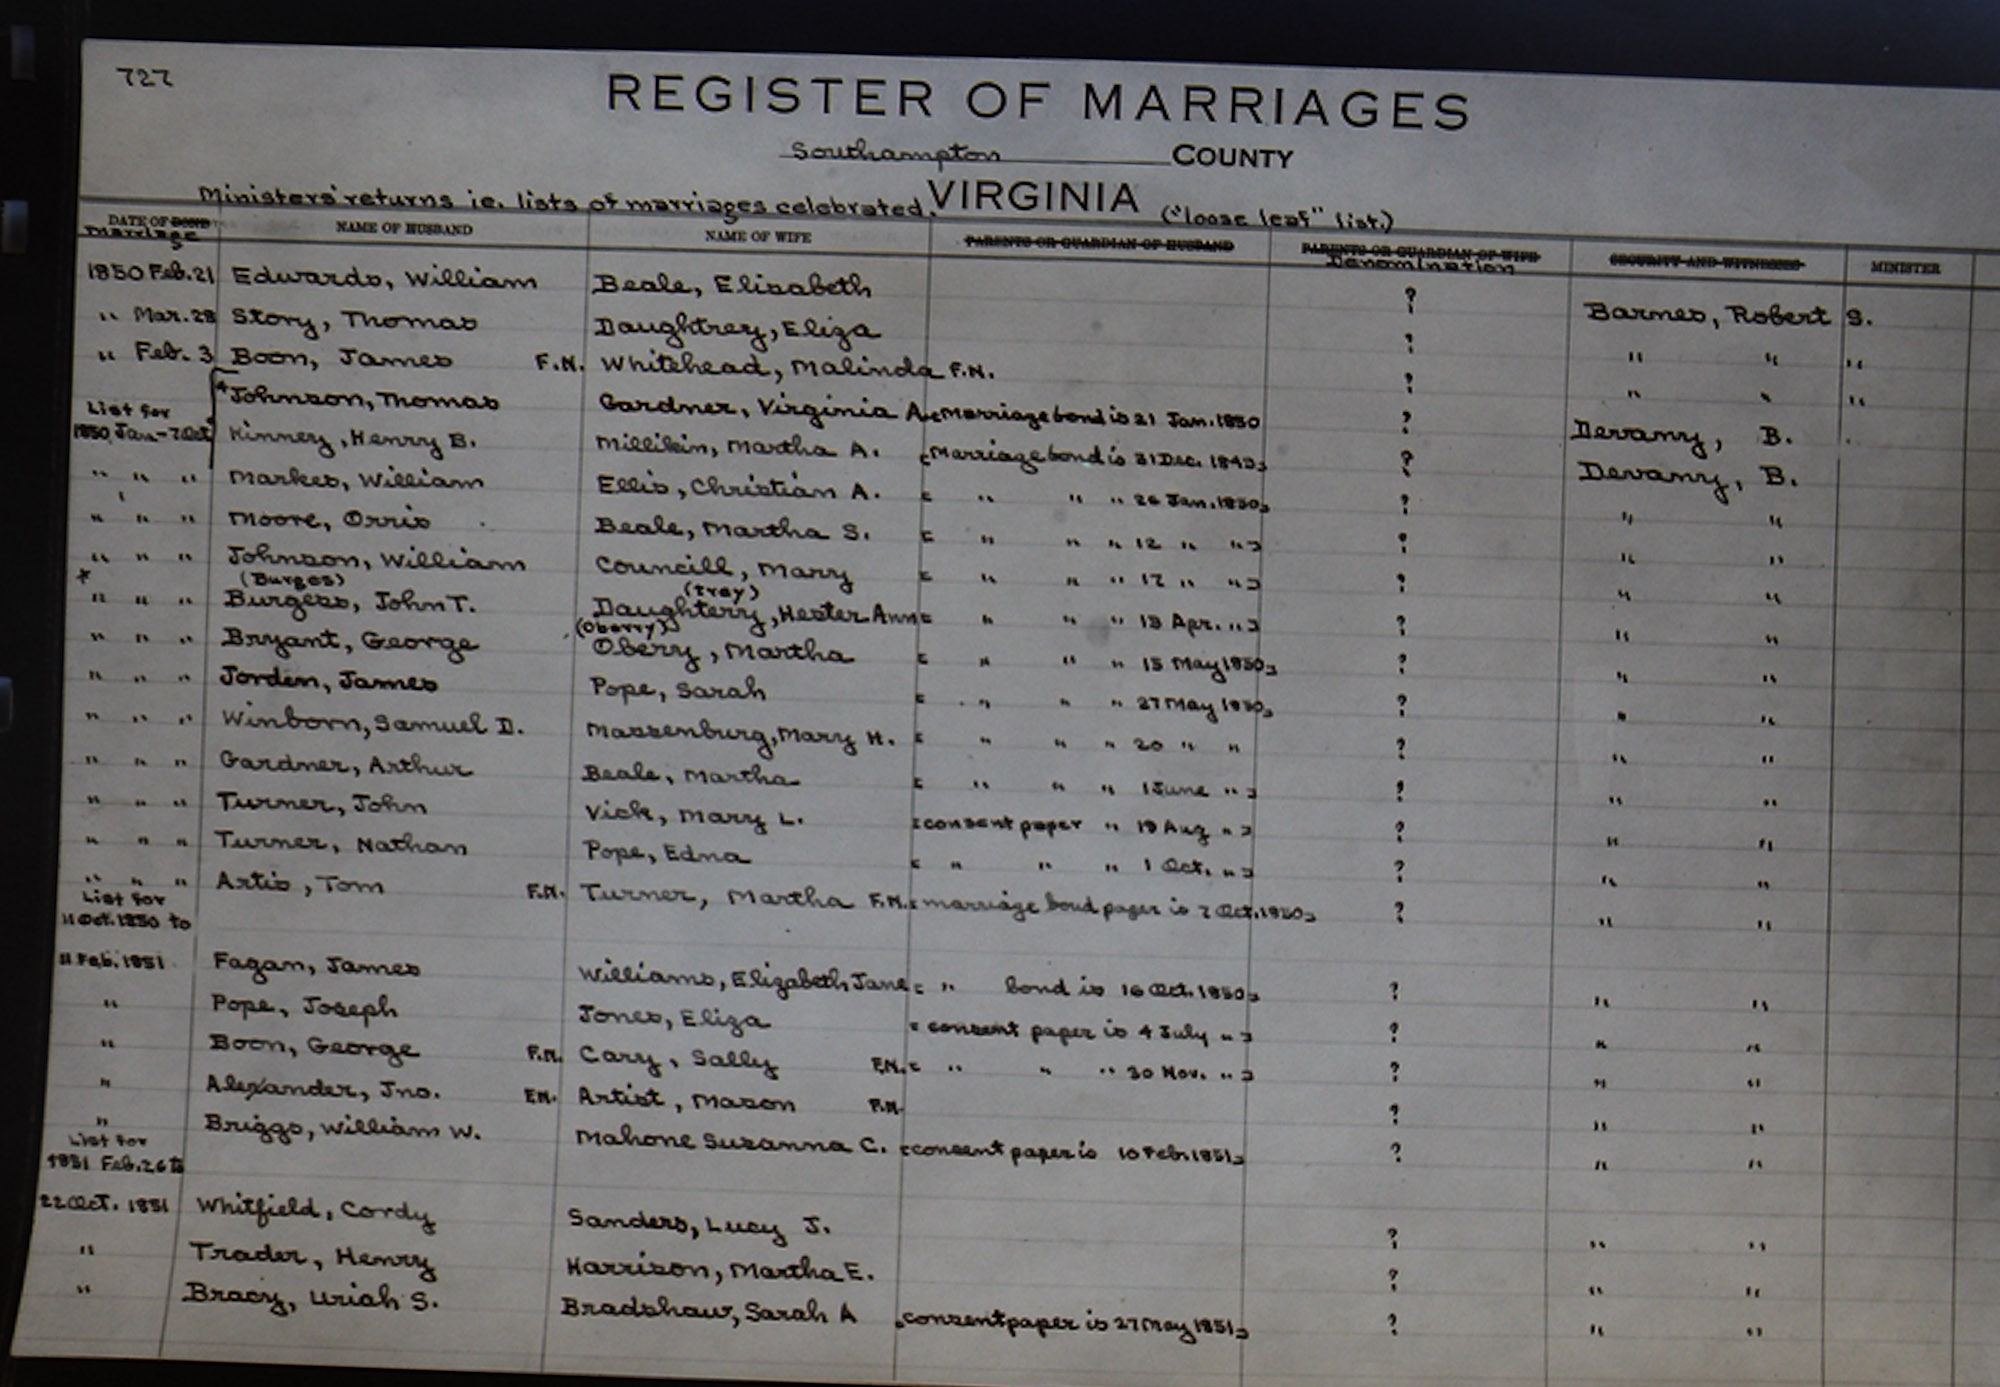 727
REGISTER OF MARRIAGES
Southampton COUNTY
Ministers' returns ie. lists of marriages celebrated. VIRGINIA ("loose leaf" list.)
DATE OF BOND NAME OF HUSBAND NAME OF WIFE PARENTS OR GUARDIAN OF HUSBAND PARENTS OR GUARDIAN OF WIFE SECURITY AND WITNESSES MINISTER
Marriage Denomination
1850 Feb. 21 Edwards, William Beale, Elisabeth ? Barnes, Robert S.
" Mar. 28 Story, Thomas Daughtrey, Eliza ? " " "
" Feb. 3 Boon, James F.N. Whitehead, Malinda F.N. ? " " "
* Johnson, Thomas Gardner, Virginia A. [Marriage bond is 21 Jan. 1850 ? Devany, B.
List for
1850 Jan-7 Oct Kinnery, Henry B. Millikin, Martha A. [Marriage bond is 31 Dec. 1849] ? Devany, B.
" " " Markes, William Ellis, Christian A. [ " " " 26 Jan. 1850] ? " "
" " " Moore, Orris Beale, Martha S. [ " " " 12 " "] ? " "
" " " Johnson, William Councill, Mary [ " " " 17 " "] ? " "
* (Burges) (trey)
" " " Burgess, John T. Daughterry, Hester Ann [ " " " 18 Apr. "] ? " "
(Oberry)
" " " Bryant, George Obery, Martha [ " " " 15 May 1850] ? " "
" " " Jorden, James Pope, Sarah [ " " " 27 May 1850] ? " "
" " " Winborn, Samuel D. Massenburg, Mary H. [ " " " 20 " " ? " "
" " " Gardner, Arthur Beale, Martha [ " " " 1 June "] ? " "
" " " Turner, John Vick, Mary L. [consent paper " 19 Aug "] ? " "
" " " Turner, Nathan Pope, Edna [ " " " 1 Oct. "] ? " "
" " " Artis, Tom F.N. Turner, Martha F.N. [marriage bond paper is 7 Oct. 1850] ? " "
List for
11 Oct. 1850 to
11 Feb. 1851 Fagan, James Williams, Elizabeth Jane [ " bond is 16 Oct. 1850] ? " "
" Pope, Joseph Jones, Eliza [consent paper is 4 July "] ? " "
" Boon, George F.N. Cary, Sally F.N. [ " " " 30 Nov. "] ? " "
" Alexander, Jno. F.N. Artist, Mason F.N. ? " "
" Briggs, William W. Mahone Susanna C. [consent paper is 10 Feb. 1851] ? " "
List for
1851 Feb. 26 to
22 Oct. 1851 Whitfield, Cordy Sanders, Lucy J. ? " "
" Trader, Henry Harrison, Martha E. ? " "
" Bracy, Uriah S. Bradshaw, Sarah A [consent paper is 27 May 1851] ? " "